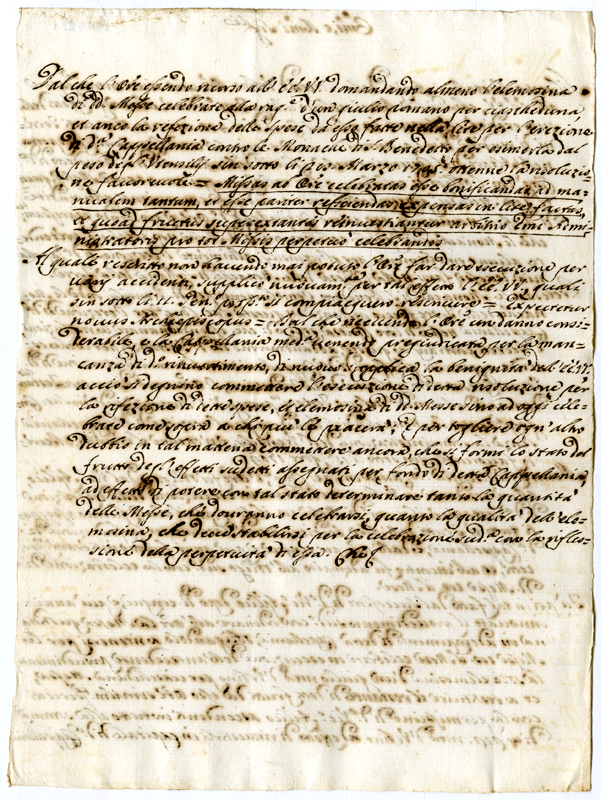 Dal che l'Ore essendo ricorso all' EE. VV. domandando almeno l'elemosina
di d.e Messe celebrate alla rag.e d'un giulio romano per ciascheduna,
et anco la refezione delle spese da esso fatte nella lite per l'erezione
di d.a Cappellania contro le Monache di S. Benedetto per esimerla dal
peso degl' Utensili sin sotto li Marzo ottenne la risoluzio-
ne favorevole = Missas ab Ore celebratas esse bonificandas ad ma-
nualem tantum, et esse pariter reficiendas expensas in lite factas,
et quoad fructus superextantes reinvestiantur arbitrio Emi Admi-
nistratoris pro tot Missis perpetuo celebrandis
Al quale rescritto non havendo mai potuto l'Ore far dare esecuzione per
varij accidenti, supplicò nuovam.e per tal effetto l'EE. VV. quali
sin sotto li 11 Gen. pross.o si compiacquero rescrivere = Expectetur
novus Archiepiscopus = Dal che ricevendo l'Ore un danno consi-
derabile, e la Cappellania med.a venendo pregiudicata per la man-
canza di d.o rinvestimento, di nuovo supplica la benignità dell' EE. VV.
acciò si degnino commettere l'esecuzione di detta risoluzione per
la refezione di dette spese, et elemosina di d.e Messe sino ad oggi cele-
brate come sopra a chi più le piacerà; E per togliere ogn' altro
dubbio in tal materia commettere ancora, che si formi lo stato del
frutto degl' effetti sudetti assegnati per fondo di detta Cappellania,
ad effetto di potere con tal stato determinare tanto la quantità
delle Messe, che dovranno celebrarsi, quanto la qualità dell' ele-
mosina, che deve stabilirsi per la celebrazione sud.a con la rifles-
sione della perpetuità di essa. Che